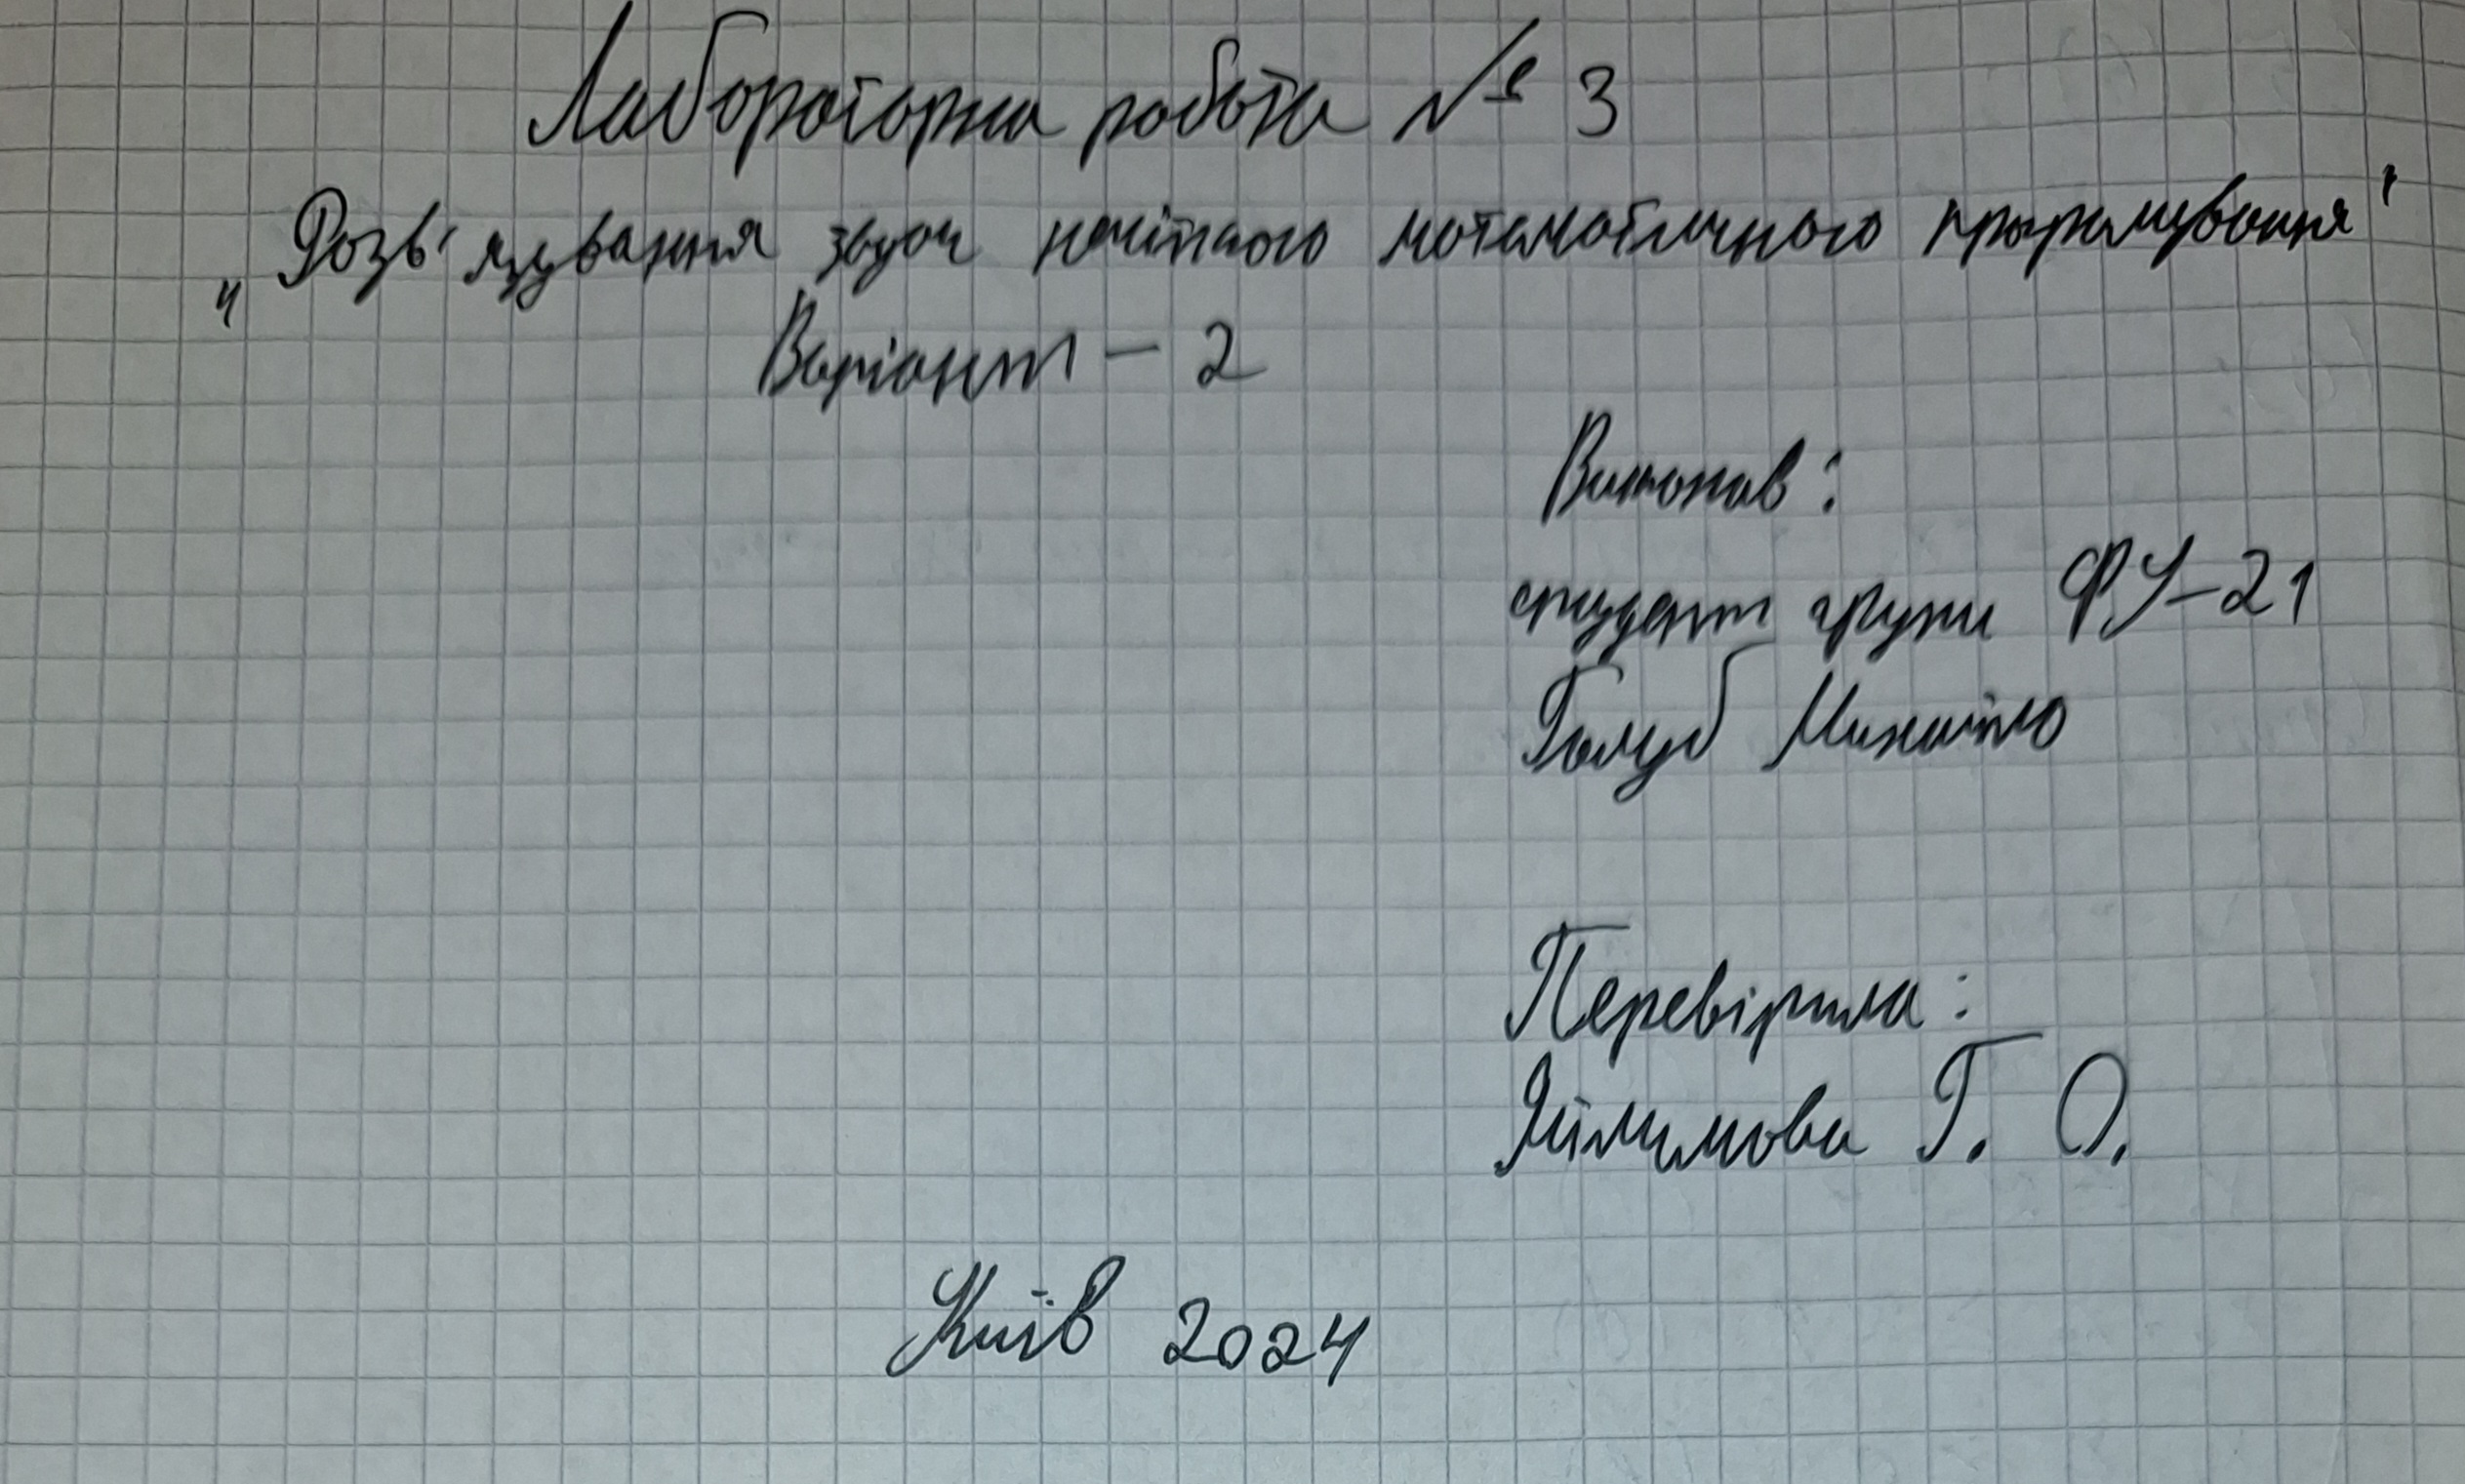 Лабораторна робота № 3
"Розв'язування задач нечіткого математичного програмування"
Варіант - 2
Виконав:
студент групи ФУ-21
Голуб Михайло
Перевірила:
Г. О.
Київ 2024